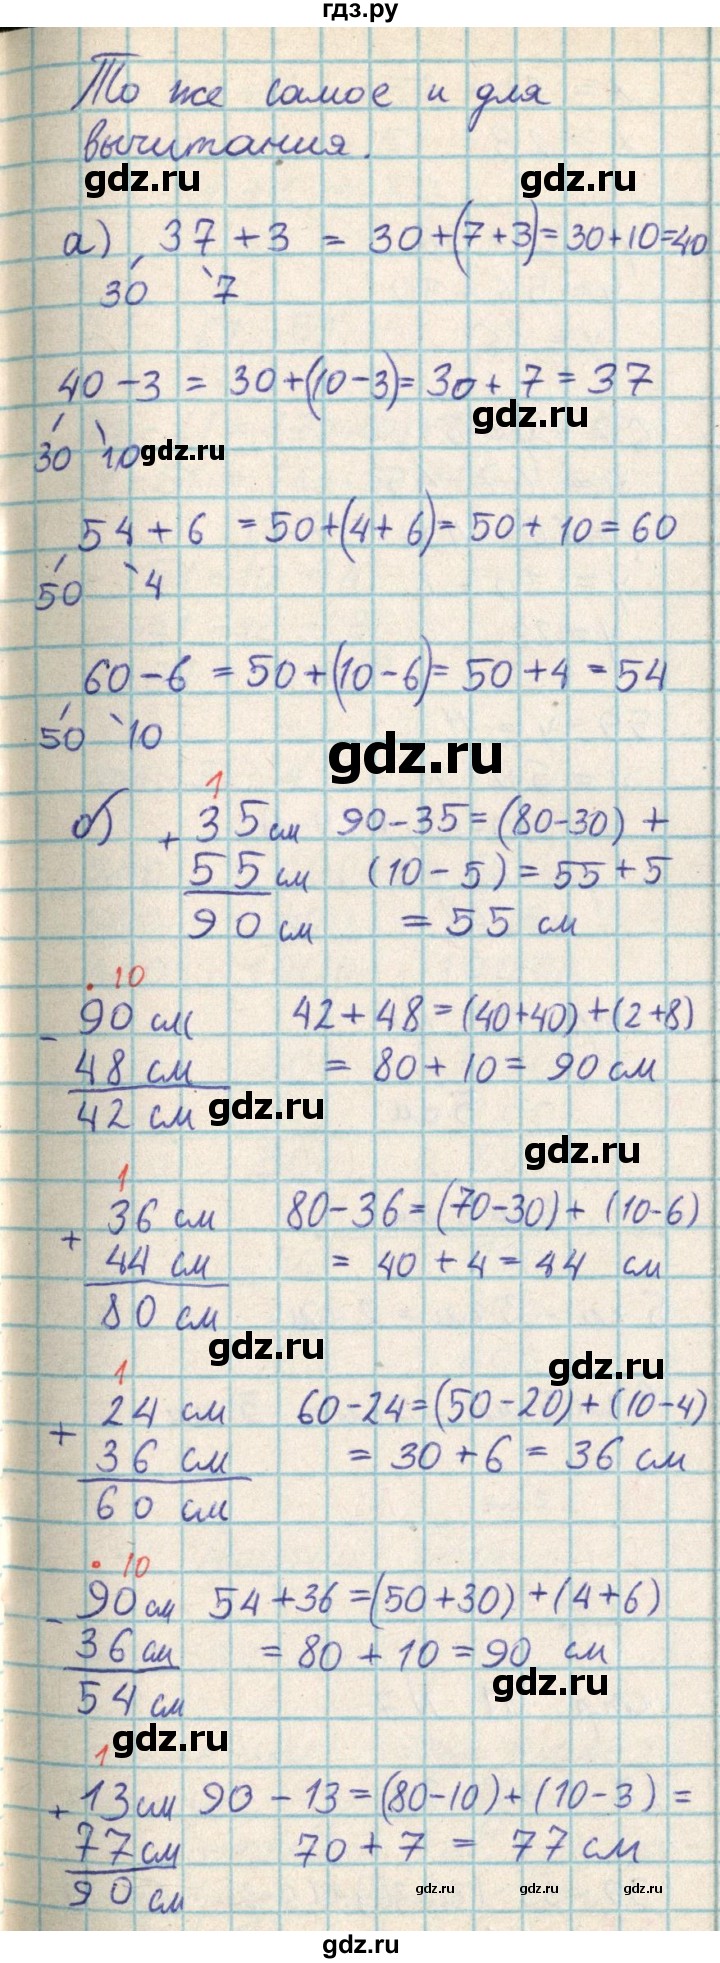 гдз.ру
То же самое и для
вычитания.
gdz.ru gdz.ru
а) 37 + 3 = 30 + (7 + 3) = 30 + 10 = 40
30 7
40 - 3 = 30 + (10 - 3) = 30 + 7 = 37
gdz.ru
30 10 gdz.ru
54 + 6 = 50 + (4 + 6) = 50 + 10 = 60
50 4
60 - 6 = 50 + (10 - 6) = 50 + 4 = 54
50 10 gdz.ru
1
б) + 35 см 90 - 35 = (80 - 30) +
55 см (10 - 5) = 55 + 5
90 см = 55 см
. 10
- 90 см 42 + 48 = (40 + 40) + (2 + 8)
48 см = 80 + 10 = 90 см
42 см gdz.ru
gdz.ru
1
+ 36 см 80 - 36 = (70 - 30) + (10 - 6)
44 см = 40 + 4 = 44 см
80 см
gdz.ru gdz.ru
1
+ 24 см 60 - 24 = (50 - 20) + (10 - 4)
36 см = 30 + 6 = 36 см
60 см
. 10
- 90 см 54 + 36 = (50 + 30) + (4 + 6)
36 см = 80 + 10 = 90 см
54 см gdz.ru
1 gdz.ru
+ 13 см 90 - 13 = (80 - 10) + (10 - 3) =
77 см 70 + 7 = 77 см
90 см gdz.ru gdz.ru gdz.ru
gdz.ru